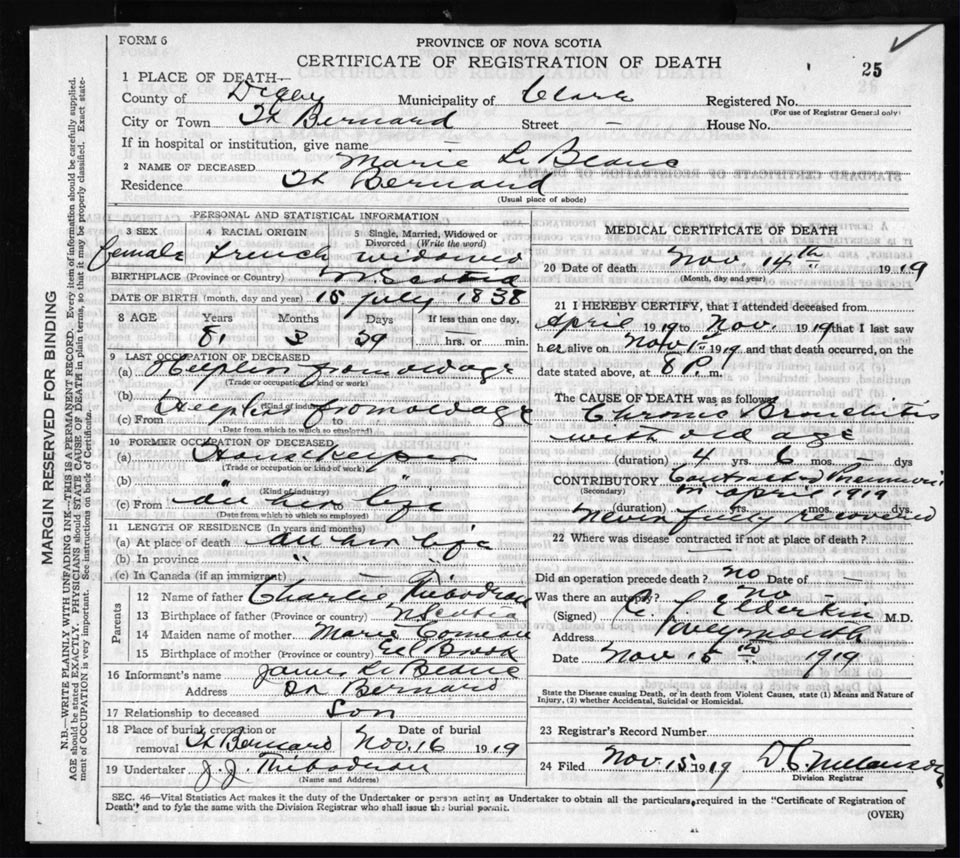 FORM 6
PROVINCE OF NOVA SCOTIA
CERTIFICATE OF REGISTRATION OF DEATH
25
1 PLACE OF DEATH—
County of Digby Municipality of Clare Registered No.
(For use of Registrar General only)
City or Town St Bernard Street — House No.
If in hospital or institution, give name —
2 NAME OF DECEASED Marie Le Blanc
Residence St Bernard
(Usual place of abode)
PERSONAL AND STATISTICAL INFORMATION
3 SEX 4 RACIAL ORIGIN 5 Single, Married, Widowed or Divorced (Write the word)
female French widowed
BIRTHPLACE (Province or Country) N. Scotia
DATE OF BIRTH (month, day and year) 15 July 1838
8 AGE Years Months Days If less than one day,
81 3 29 — hrs. or min.
9 LAST OCCUPATION OF DECEASED
(a) Helpless from old age
(Trade or occupation or kind of work)
(b)
(Kind of industry)
Helpless from old age
(c) From to
(Date from which to which so employed)
10 FORMER OCCUPATION OF DECEASED
(a) Housekeeper
(Trade or occupation or kind of work)
(b)
(Kind of industry)
(c) From all her life
(Date from which to which so employed)
11 LENGTH OF RESIDENCE (In years and months)
(a) At place of death all her life
(b) In province "
(c) In Canada (if an immigrant) —
Parents
12 Name of father Charlie Thibodeau
13 Birthplace of father (Province or country) N Scotia
14 Maiden name of mother Marie Comeau
15 Birthplace of mother (Province or country) Eel Brook
16 Informant's name James Le Blanc
Address St Bernard
17 Relationship to deceased Son
18 Place of burial cremation or removal St Bernard Date of burial Nov. 16 1919
19 Undertaker J. J. Thibodeau
(Name and Address)
MEDICAL CERTIFICATE OF DEATH
20 Date of death Nov. 14th 1919
(Month, day and year)
21 I HEREBY CERTIFY, that I attended deceased from
April 1919 to Nov. 1919 that I last saw
her alive on Nov 1st 1919 and that death occurred, on the
date stated above, at 8 P. m.
The CAUSE OF DEATH was as follows:
Chronic Bronchitis
with old age
(duration) 4 yrs. 6 mos. dys
CONTRIBUTORY Contracted Pneumonia
(Secondary) in April 1919
(duration) yrs. mos. dys.
Never fully recovered
22 Where was disease contracted if not at place of death?
—
Did an operation precede death? no Date of —
Was there an autopsy? no
(Signed) Elderkin M.D.
Address Weymouth
Date Nov 15th 1919
State the Disease causing Death, or in death from Violent Causes, state (1) Means and Nature of
Injury, (2) whether Accidental, Suicidal or Homicidal.
23 Registrar's Record Number
24 Filed Nov. 15 1919 D. C. Melanson
Division Registrar
SEC. 46—Vital Statistics Act makes it the duty of the Undertaker or person acting as Undertaker to obtain all the particulars required in the "Certificate of Registration of
Death" and to fyle the same with the Division Registrar who shall issue the burial permit.
(OVER)
MARGIN RESERVED FOR BINDING
N.B.—WRITE PLAINLY WITH UNFADING INK—THIS IS A PERMANENT RECORD. Every item of information should be carefully supplied.
AGE should be stated EXACTLY. PHYSICIANS should STATE CAUSE OF DEATH in plain terms, so that it may be properly classified. Exact state-
ment of OCCUPATION is very important. See instructions on back of Certificate.